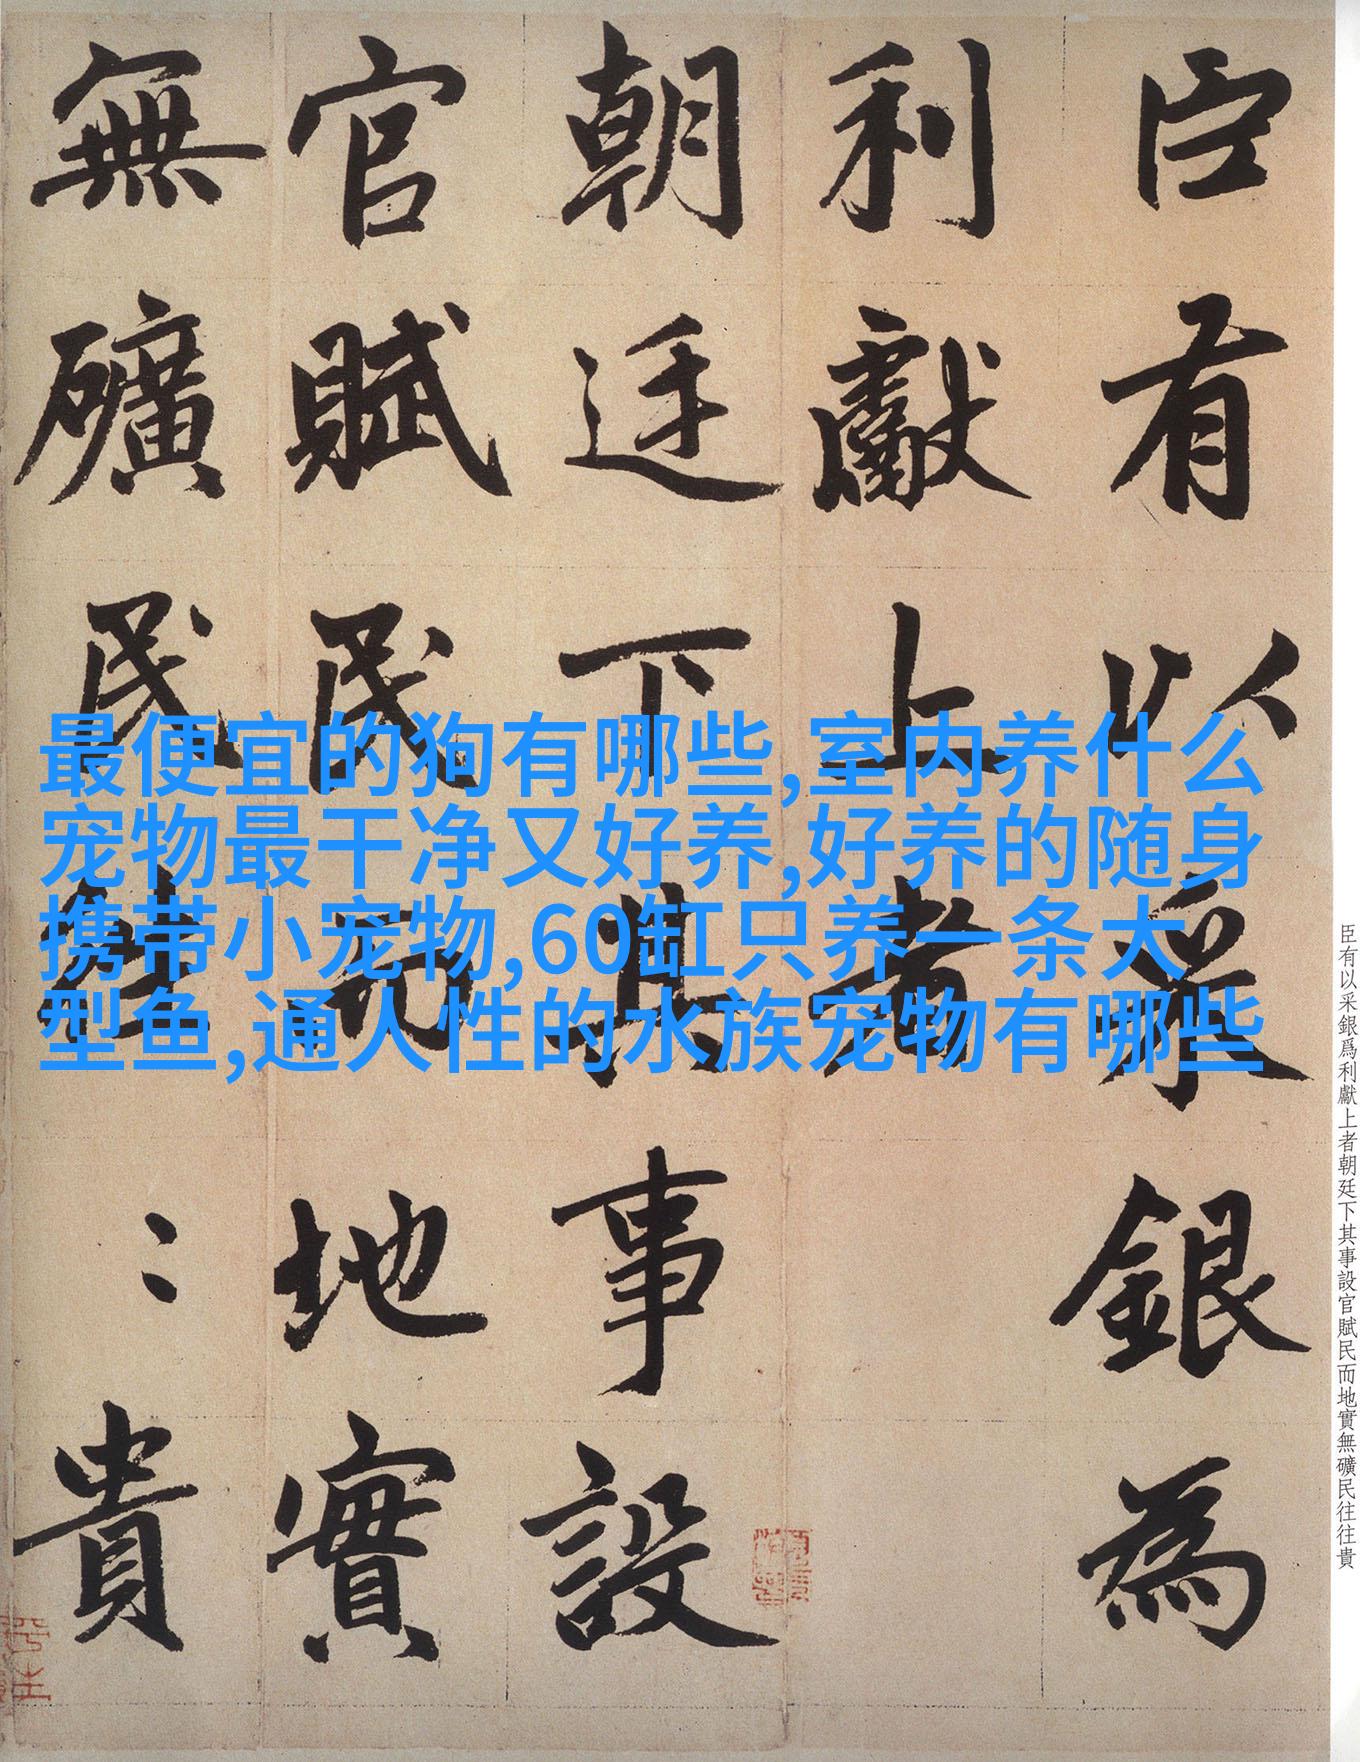 臣有以采銀為
利獻上者
朝廷下其事設
官賦民而地實
無礦民往〻貴
最便宜的狗有哪些,室内养什么
宠物最干净又好养,好养的随身
携带小宠物,60缸只养一条大
型鱼,通人性的水族宠物有哪些
臣有以采銀爲利獻上者朝廷下其事設官賦民而地實無礦民往往貴